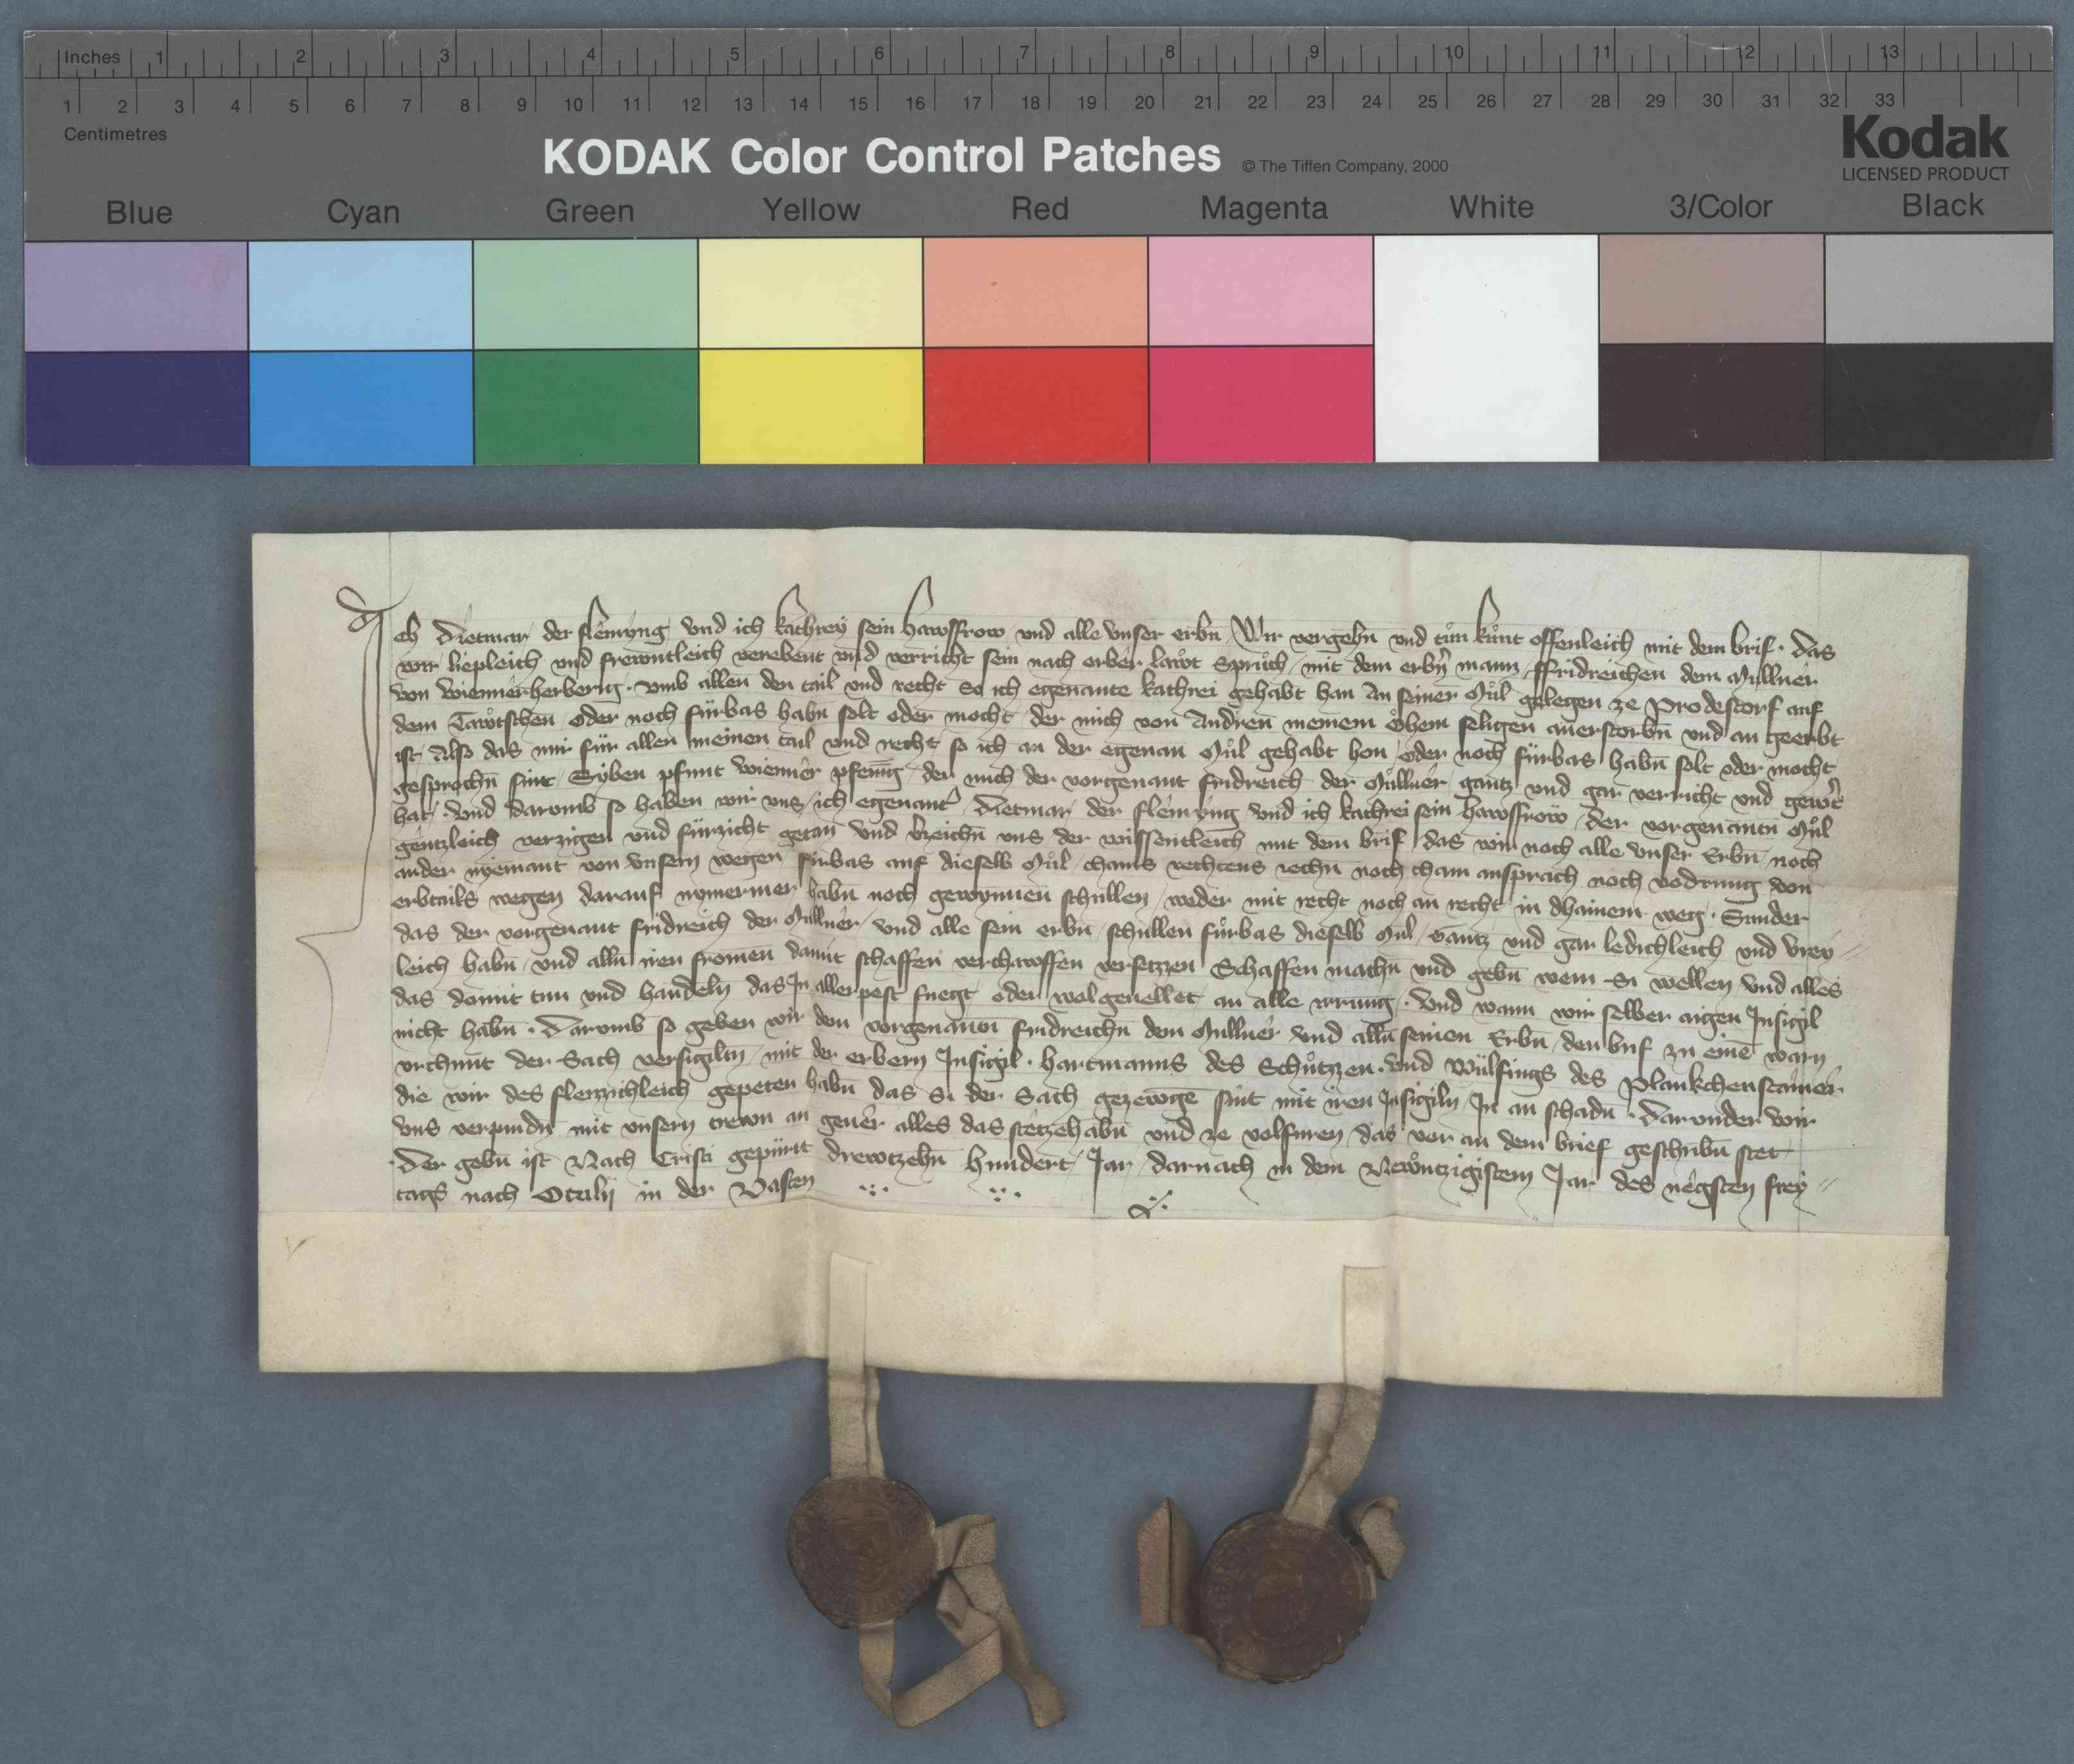 Inches 1 2 3 4 5 6 7 8 9 10 11 12 13
1 2 3 4 5 6 7 8 9 10 11 12 13 14 15 16 17 18 19 20 21 22 23 24 25 26 27 28 29 30 31 32 33
Centimetres
KODAK Color Control Patches © The Tiffen Company, 2000
Kodak
LICENSED PRODUCT
Blue Cyan Green Yellow Red Magenta White 3/Color Black
Ich Dietmar der flemyng vnd ich kathrey sein hawsfrow vnd alle vnser erbn̄ Wir vergehn̄ vnd tůn kůnt offenleich mit dem brif · das
wir liepleich vnd frewntleich verebent vnd verricht sein nach erber lawt Sprůch / mit dem erbn̄ mann / ffridreichen dem Mullner
von Wiennerherberig · vmb allen den tail vnd recht So ich egenante kathrei gehabt han An seiner Můl gelegen ze Prodestorf auf
dem Tawtschen oder noch fürbas habn̄ solt oder mocht der mich von Andren meinem öhem seligen anerstorbn̄ vnd an geerbt
ist Also das mir für allen meinen tail vnd recht so ich an der egenan Můl gehabt hon / oder noch fürbas habn̄ solt oder mocht
gesprochn̄ sint Syben pfunt wienner pfenig der mich der vorgenant fridreich der Můllner gantz vnd gar verricht vnd gewert
hat · vnd daromb so haben wir vns / ich egenant Dietmar der flemyng vnd ich kathrei sein hawsfrow der vorgenantn̄ Můl
gentzleich verzigen vnd fürzicht getan vnd verzeichn̄ vns der wissentleich mit dem brif / das wir noch alle vnser Erbn̄ noch
ander nyemant von vnsern wegen fürbas auf dieselb Můl chains rechtens iechn̄ noch cham ansprach noch vodrung von
erbtails wegen darauf nymermer habn̄ noch gewynnen schullen / weder mit recht noch an recht in dhainem weg · Sunder
das der vorgenant fridreich der Mullner / vnd alle sein erbn̄ schullen fürbas dieselb Můl / gantz vnd gar ledichleich vnd vrey
leich habn̄ / vnd alln̄ iren fromen damit schaffen verchawffen versetzzen Schaffen machn̄ vnd gebn̄ wem Si wellen vnd alles
das domit tun vnd handeln das In aller pest fuegt oder wolgeuellet an alle irrung · vnd wann wir selber aigen Insigil
nicht habn̄ · Daromb so geben wir den vorgenanten fridreichn̄ dem Mullner vnd alln̄ seinen Erbn̄ / den brif zu eine warn
vrchunt der Sach versigiltn / mit der erbern Insigil · hartmanns des Schůtzzen · vnd Wülfings des Plankchenstainer
die wir des fleizzichleich gepeten habn̄ das Si der Sach gezewge sint mit iren Insigiln / In an schadn̄ · Darunder wir
vns verpindn̄ mit vnsern trewn an geuer alles das stet ze habn̄ vnd ze volfuren / das vor an dem brief geschribn̄ stet
Der gebn̄ ist Nach Cristi gepürt drewtzehn̄ hundert Jar / darnach in dem Newntzigistem Jar des negsten frey
tags nach Oculi in der Vasten